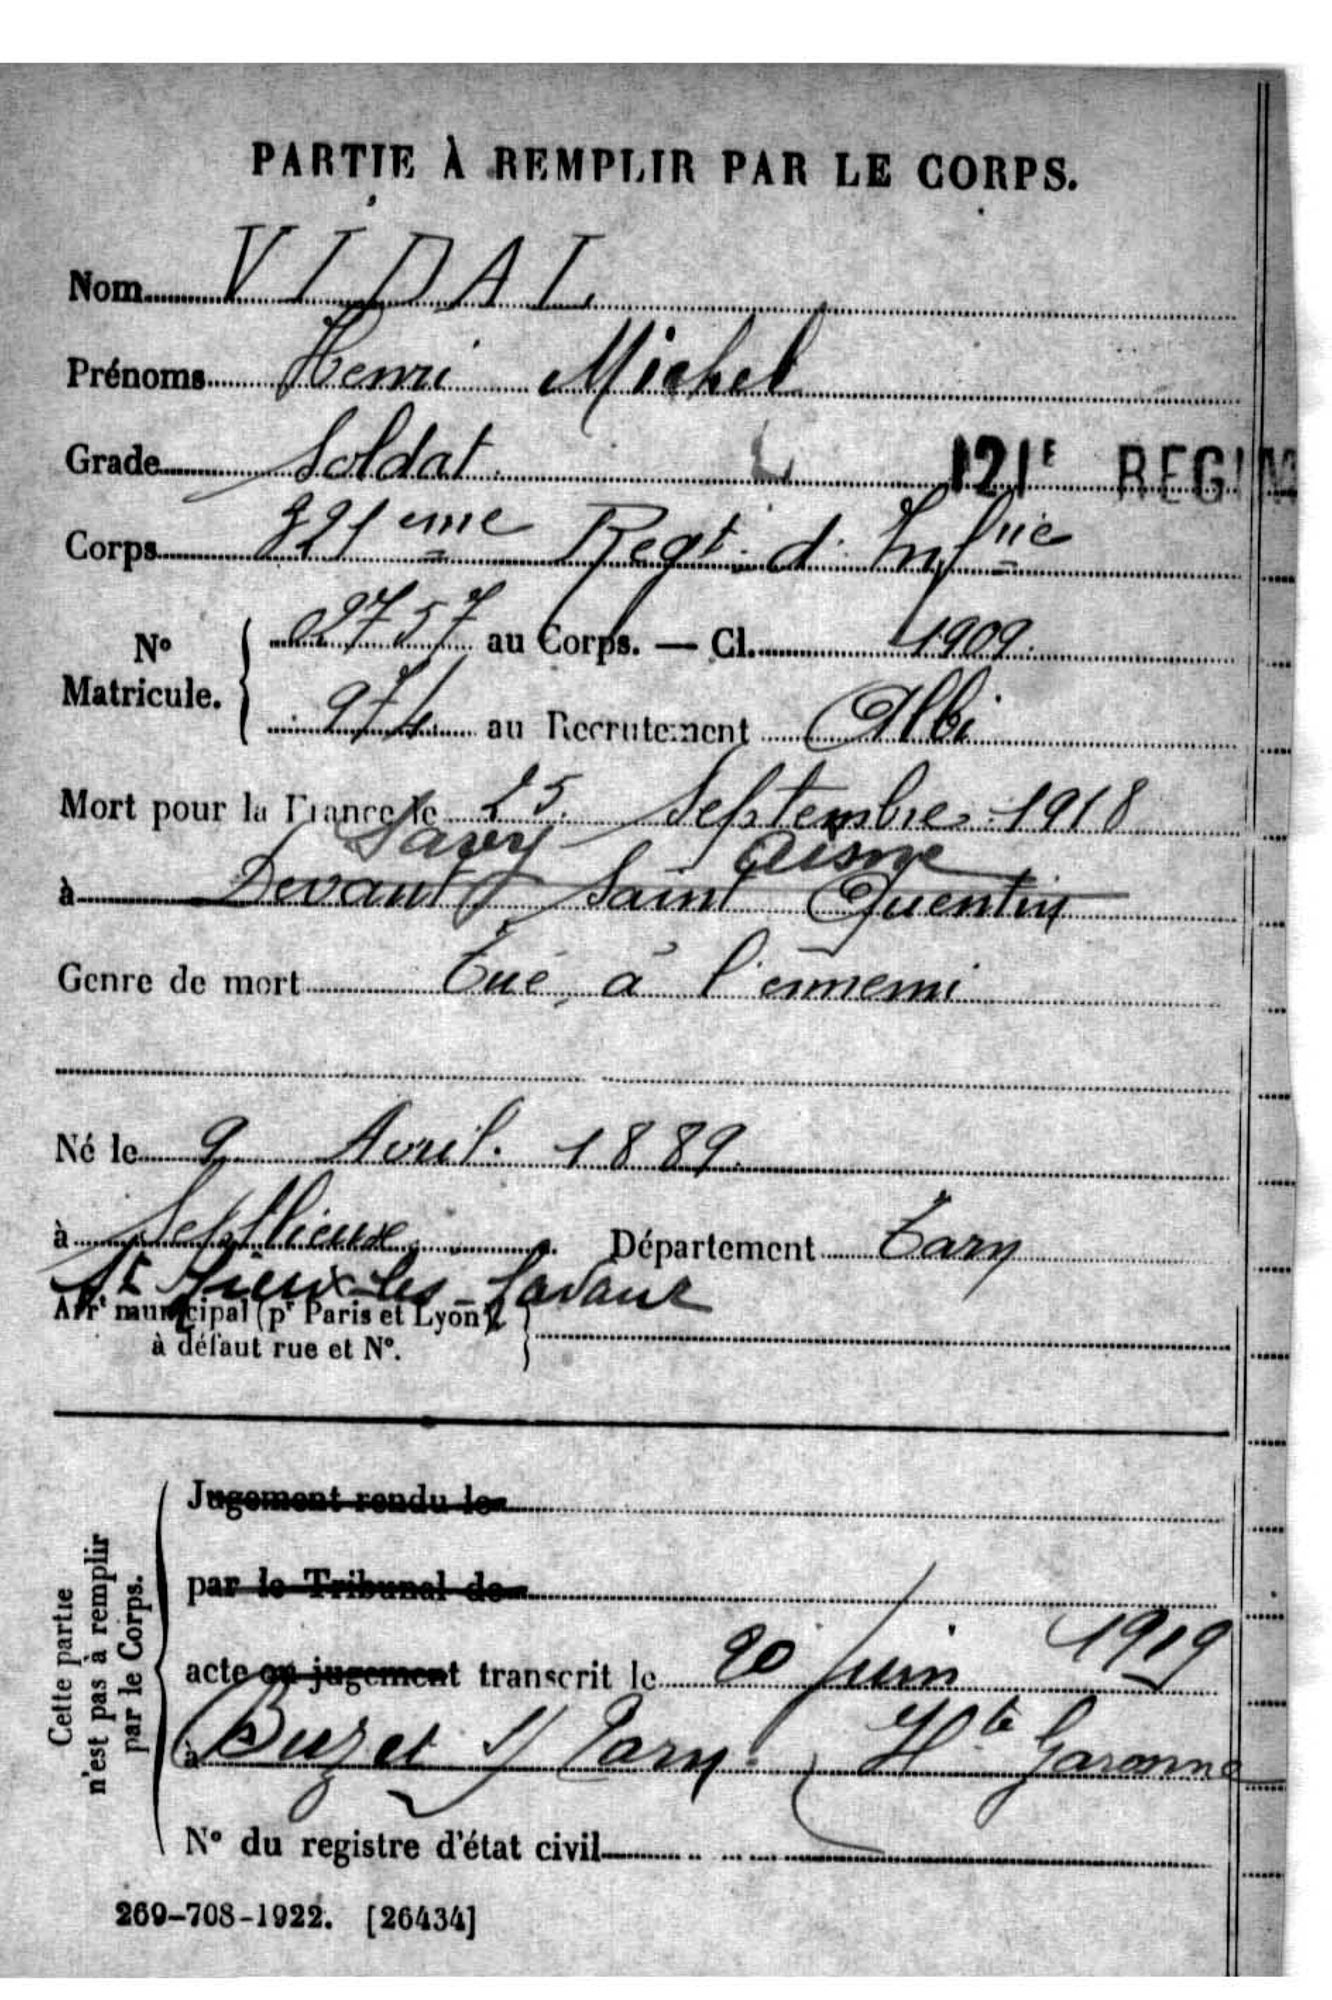 PARTIE À REMPLIR PAR LE CORPS.
Nom VIDAL
Prénoms Henri Michel
Grade Soldat
121E REGIM
Corps 321eme Regt. d'Infrie
No Matricule. 2757 au Corps. — Cl. 1909.
974 au Recrutement Albi
Mort pour la France le 25. Septembre 1918
Savy Aisne
à Devant Saint Quentin
Genre de mort Tué à l'ennemi
Né le 9 Avril. 1889.
à Département Tarn
St Lieux-les-Lavaur
Arrt municipal (pr Paris et Lyon),
à défaut rue et No.
Cette partie
n'est pas à remplir
par le Corps.
Jugement rendu le
par le Tribunal de
acte ou jugement transcrit le 20 Juin 1919
à Buzet s/ Tarn. Hte Garonne
No du registre d'état civil
269-708-1922. [26434]